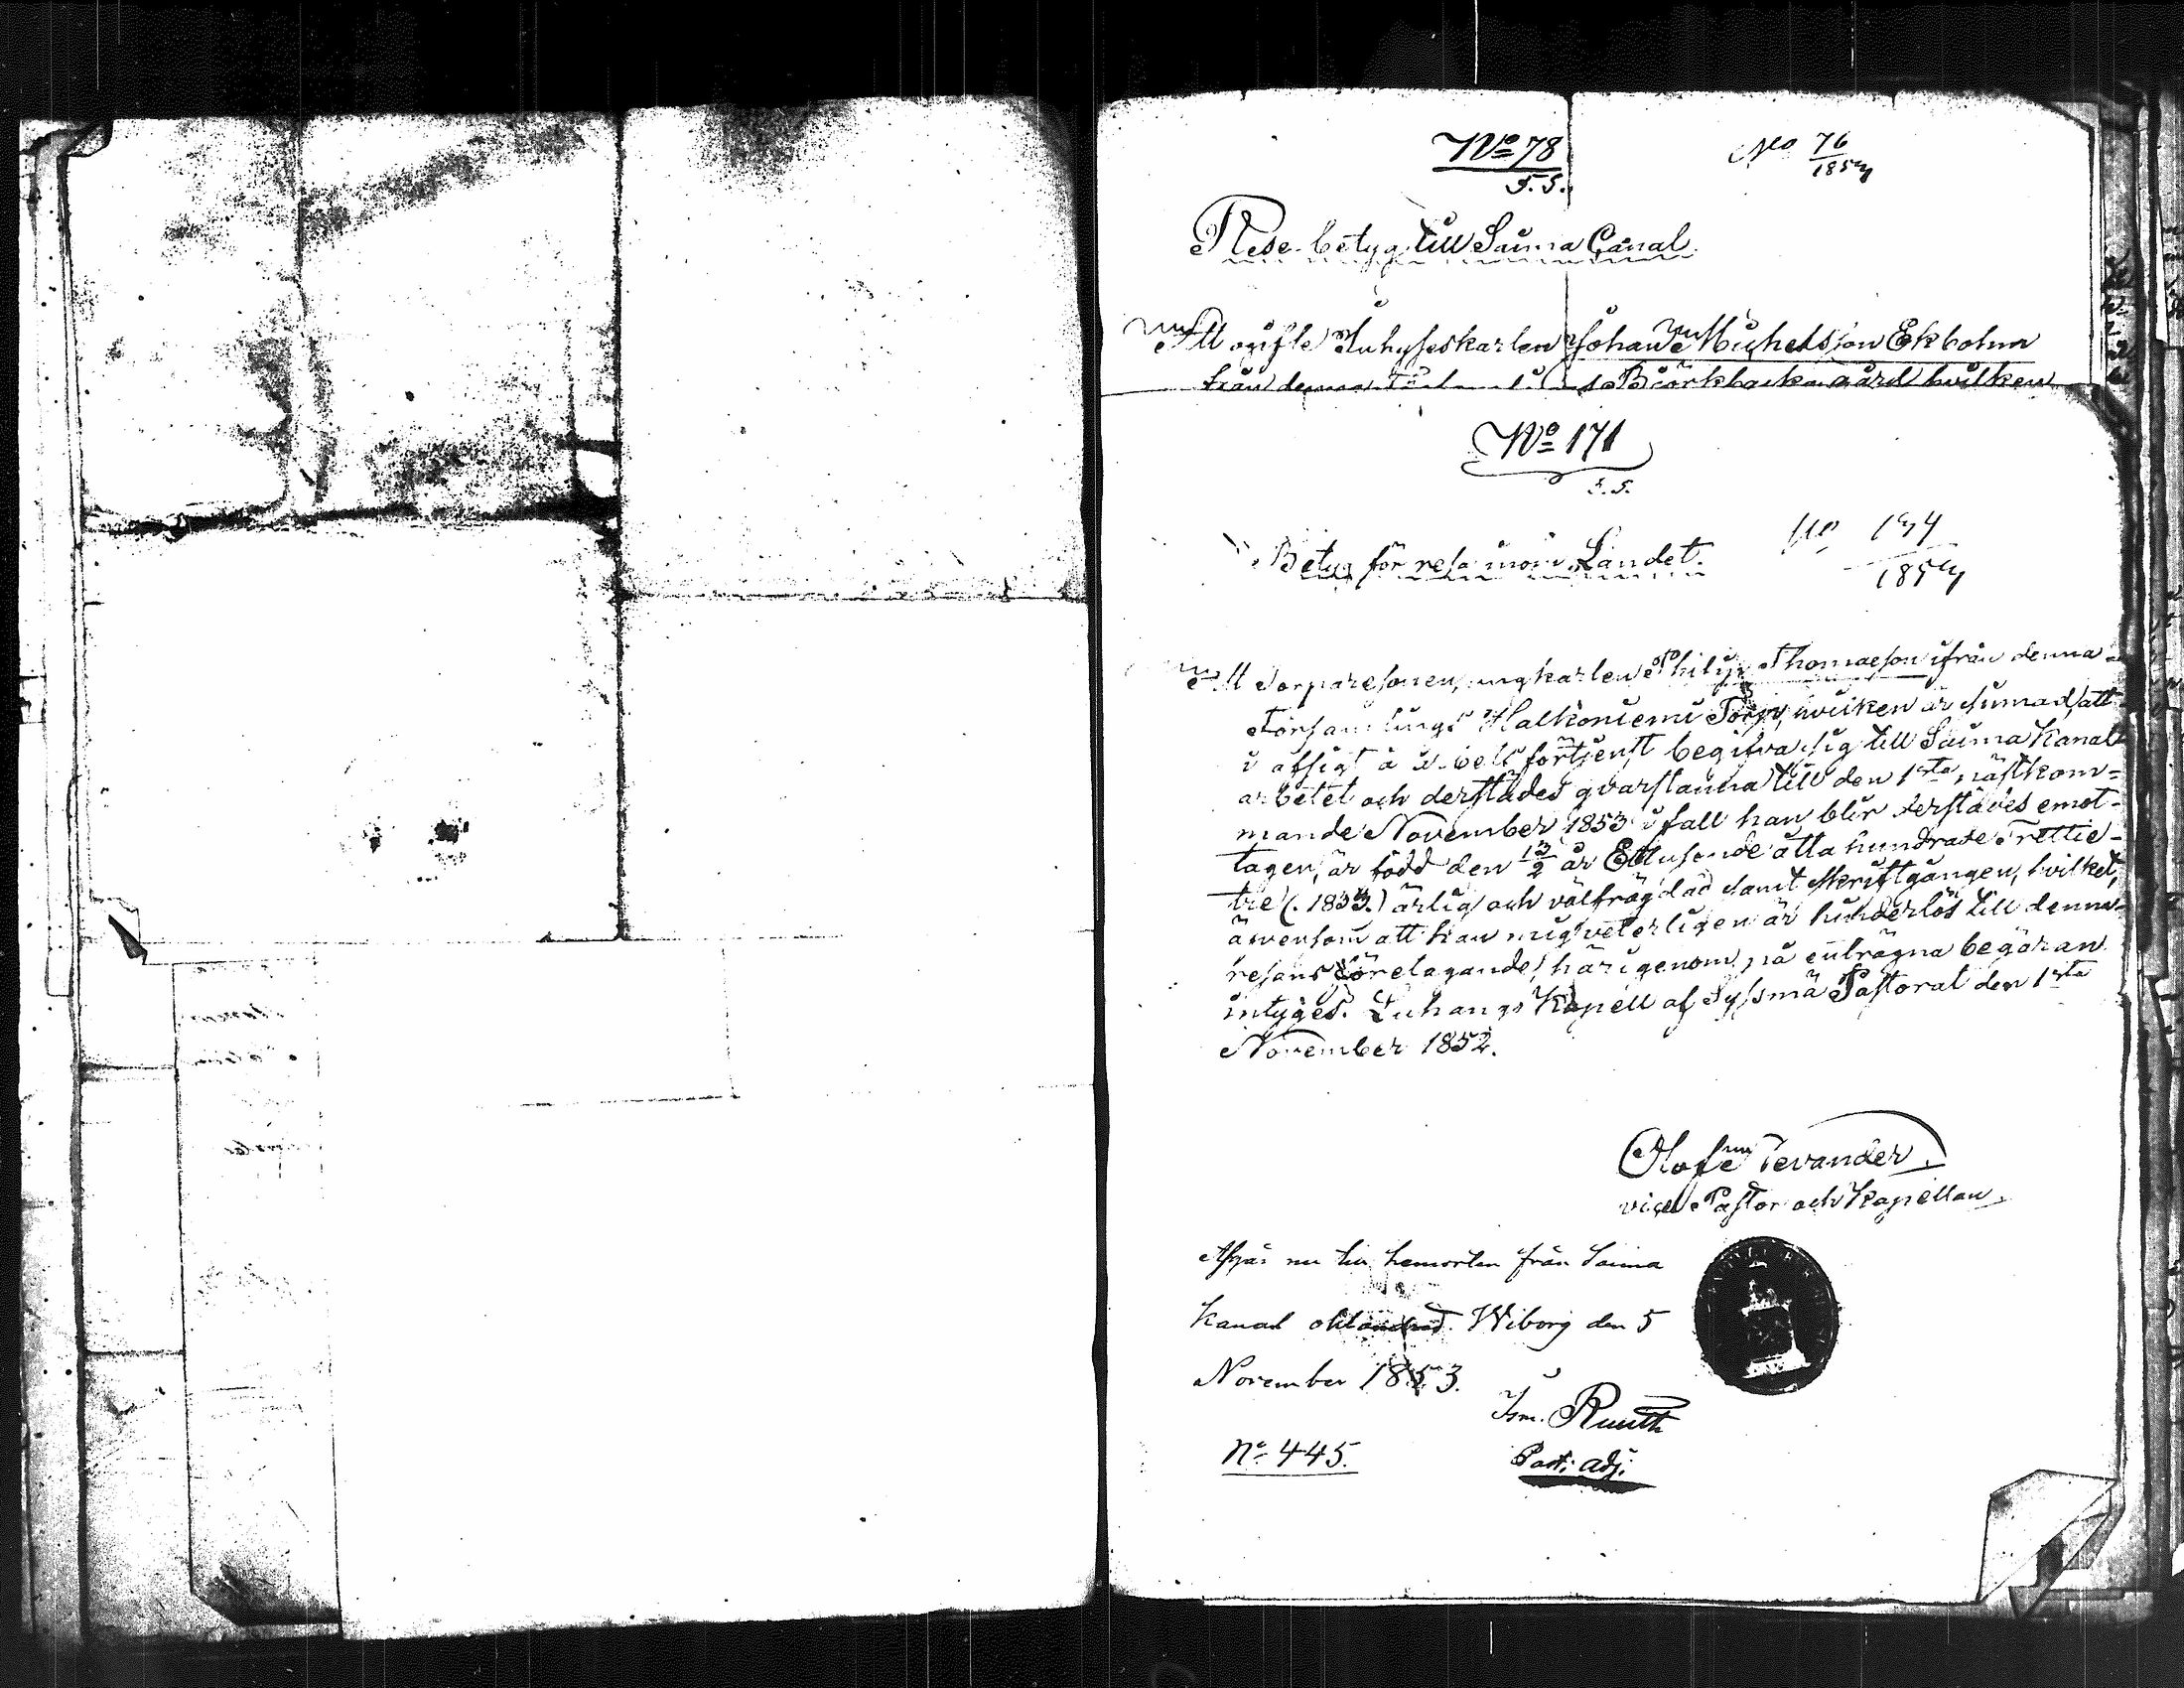 No 78
S. S.
No 76
185
Rese-betyg till Saima Canal.
Att ogifte Inhyseskarlen Johan Michelsson Ekbohm
från denna Björkbacka gård hvilken
No 171
S. S.
No 
185
Betyg för resa inom Landet.
Att Torparesonen, ungkarlen Philip Thomaeson ifrån denna
Församlings Halkoniemi Torp, hvilken är sinnad, att
i afsigt å arbets förtjenst begifva sig till Saima Kanal
arbetet och derstädes qvarstanna till den 1sta nästkom=
mande November 1853 i fall han blir derstädes emot-
tagen, är född den 13/2 år Ettusende åtta hundrade Trettie-
tre (. 1833.) ärlig och välfrägdad samt Skriftgången, hvilket,
äwensom att han mig veterligen är hinderlös till denna
resans företagande, härigenom, på enträgna begäran
intygas. Luhanga Kapell af Sysmä Pastorat den 1sta
November 1852.
Olof Levander
vice Pastor och Kapellan
Afgår nu till hemorten från Saima
Kanal oklandrad. Wiborg den 5
November 1853.
Ism. Ruuth
Past: adj.
No 445.